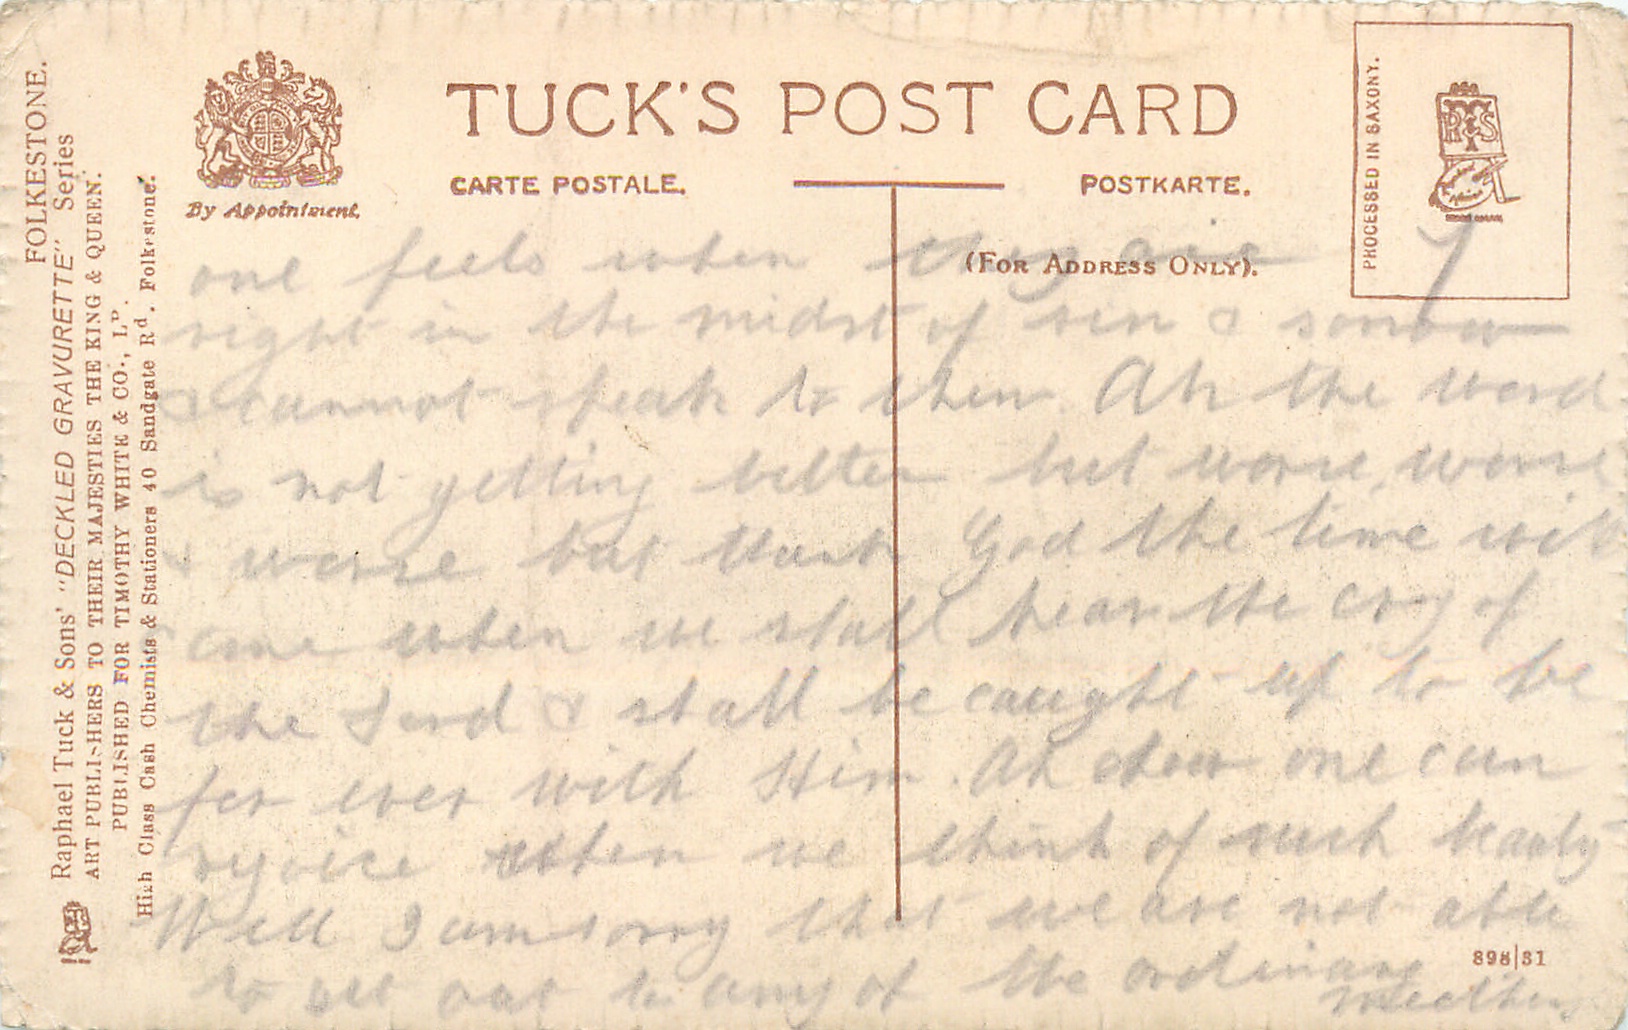 FOLKESTONE.
Raphael Tuck & Sons' "DECKLED GRAVURETTE" Series
ART PUBLISHERS TO THEIR MAJESTIES THE KING & QUEEN.
PUBLISHED FOR TIMOTHY WHITE & CO., LD.
High Class Cash Chemists & Stationers 40 Sandgate Rd. Folkestone.
By Appointment.
TUCK'S POST CARD
CARTE POSTALE.
POSTKARTE.
(FOR ADDRESS ONLY).
PROCESSED IN SAXONY.
RTS
7
one feels when they are
right in the midst of sin & sorrow
& cannot speak to them. Ah the word
is not getting better but worse, worse
& worse but thank God the time will
come when we shall hear the cry of
the Lord & shall be caught up to be
for ever with Him. Ah dear one can
rejoice when we think of such beauty
Well I am sorry that we are not able
to get out to any of the ordinary
meetings
898/31